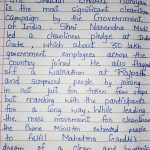 The Swachh Bharat Abhiyan
is the most significant cleanliness
campaign by the Government
of India. Shri Narendra Modi
led cleanliness pledge at India
Gate which about 30 lakh
government employees across the
country joined. He also flagged
off a walkathon at Rajpath
and surprised people by joining
in not just for token few steps
but marching with the participants
for a long way. While leading
the mass movement for cleanliness
the Prime Minister exhorted people
to fulfil Mahatma Gandhi's
dream of clean and